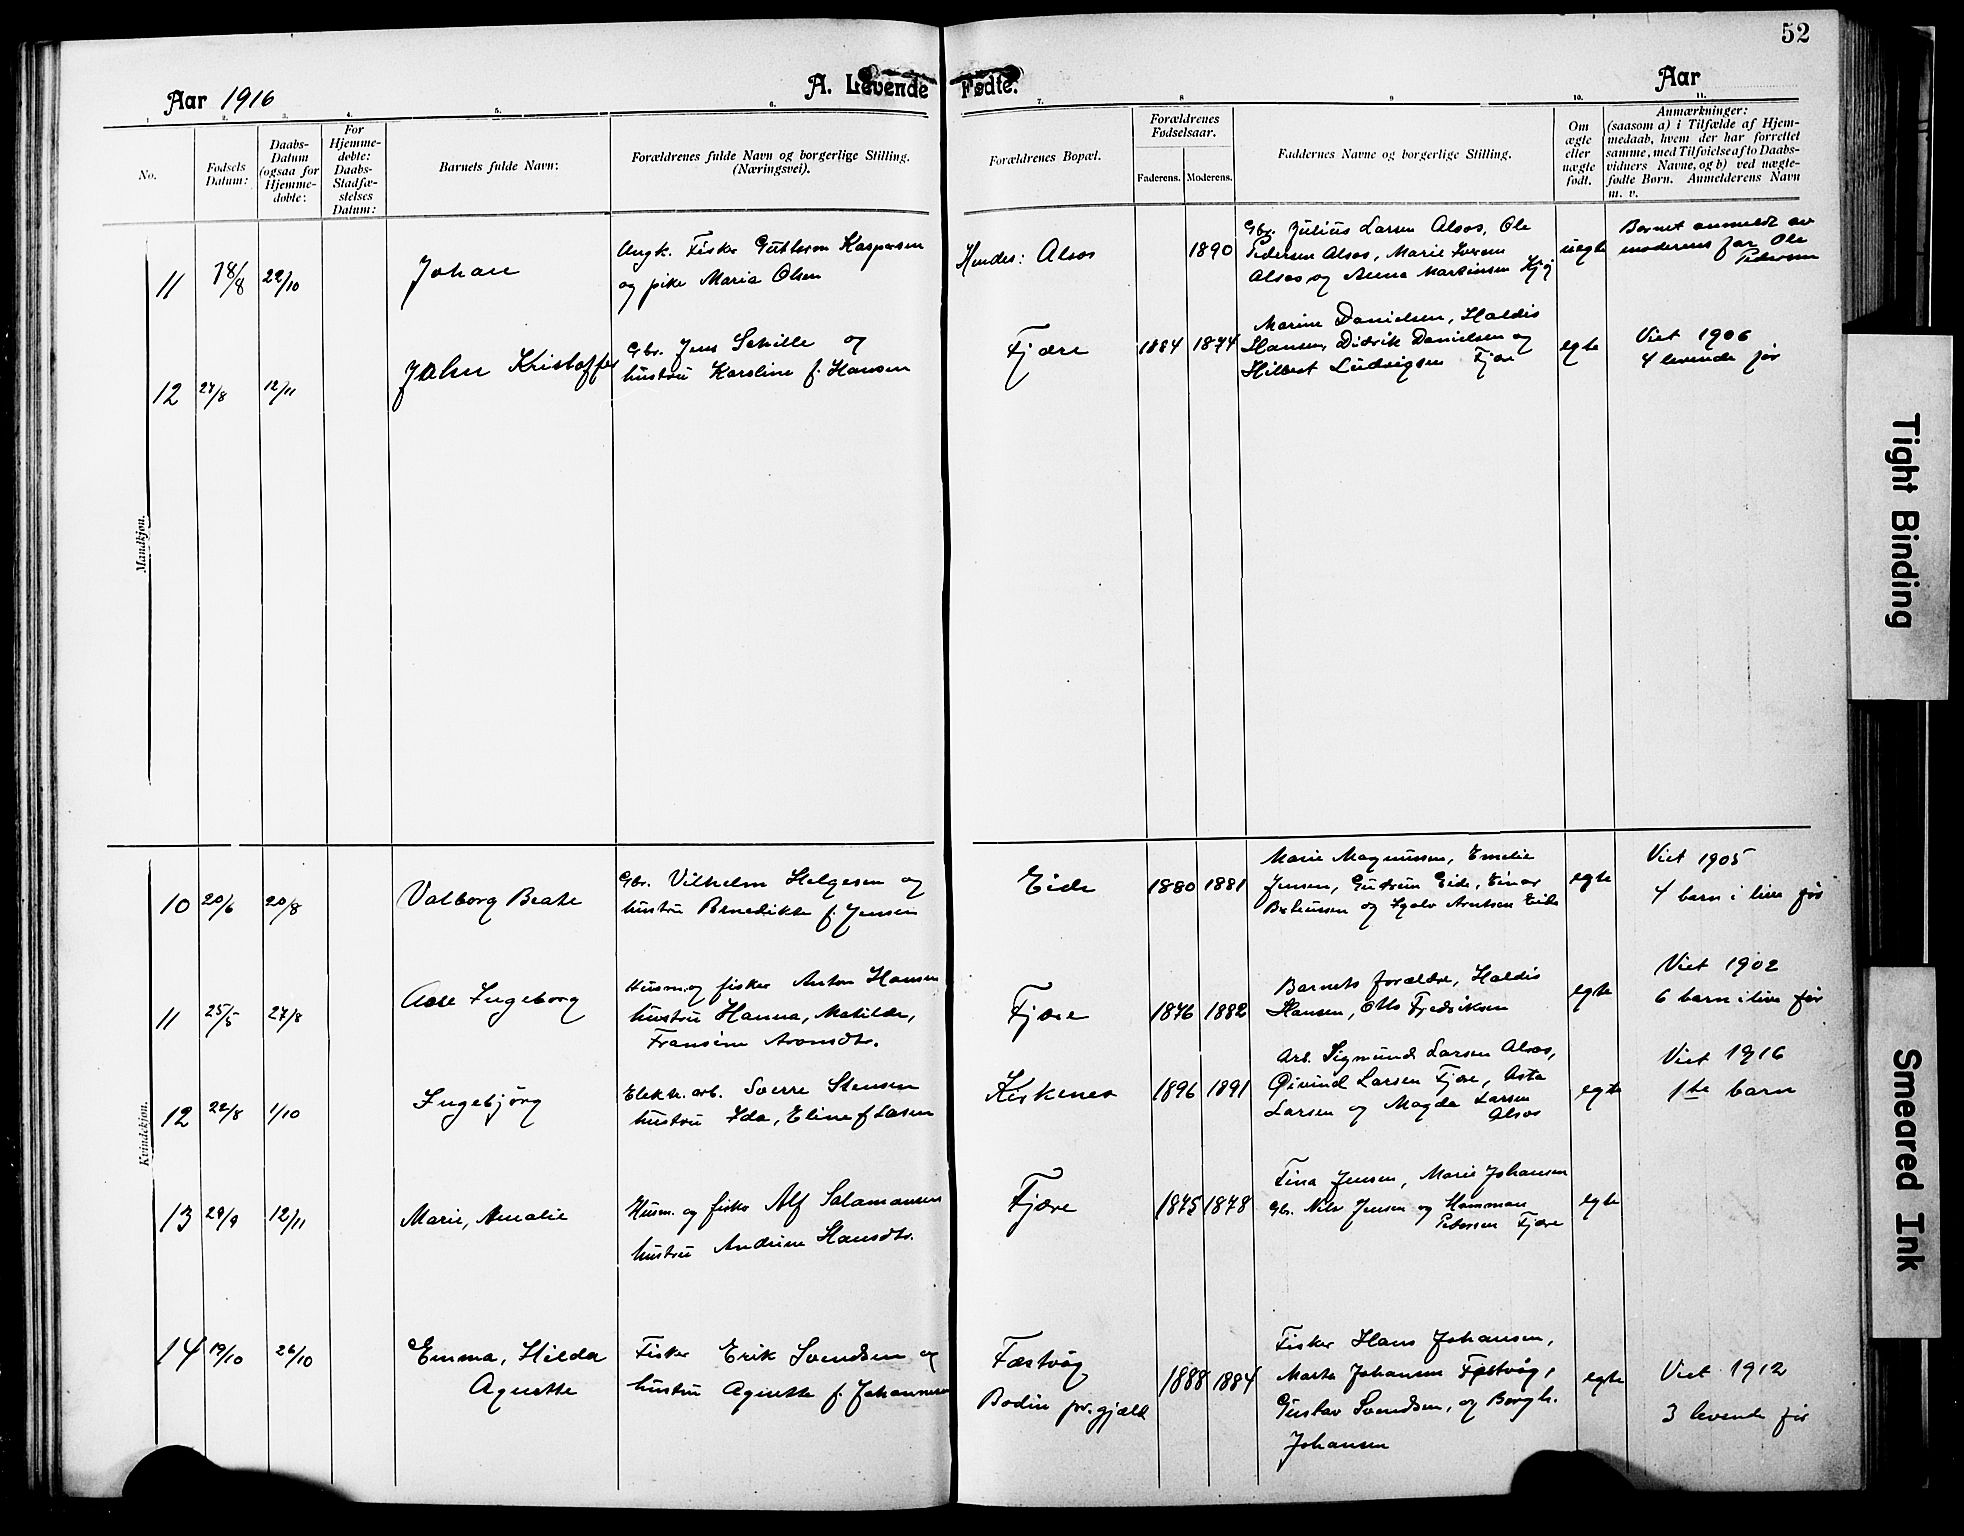 52
Aar 1916
A. Levende Fødte.
Aar
1. 2. 3. 4. 5. 6. 7. 8 9 10. 11.
No.
Fødsels Datum:
Daabs-Datum (ogsaa for Hjemme-døbte:
For Hjemme-døbte: Daabs-Stadfæ-stelses Datum:
Barnets fulde Navn:
Forældrenes fulde Navn og borgerlige Stilling.
(Næringsvei).
Forældrenes Bopæl.
Forældrenes Fødselsaar.
Faderens. Moderens.
Faddernes Navne og borgerlige Stilling.
Om ægte eller uægte født.
Anmærkninger:
(saasom a) i Tilfælde af Hjem-
medaab, hvem der har forrettet
samme, med Tilføielse af to Daabs-
vidners Navne, og b) ved uægte-
fødte Børn. Anmelderens Navn
m. v.
Mandkjøn.
11 18/8 22/10
Johan
Angk. Fisker Guttorm Kaspersen
og pike Maria Olsen
Hendes: Alsos
1890
Gbr. Julius Larsen Alsos, Ole
Pedersen Alsos, Marie Iversen
Alsos og Anna Martinsen
uegte
Barnet anmeldt av
moderens far Ole
Pedersen
12 27/8 12/11
John Kristoffer
Gbr. Jens Schille og
hustru Karoline f. Hansen
Fjære
1884 1874
Marine Danielsen, Haldis
Hansen, Didrik Danielsen og
Hilbert Ludvigsen Fjære
egte
Viet 1906
4 levende før
Kvindekjøn.
10 20/6 20/8
Valborg Beate
Gbr. Vilhelm Helgesen og
hustru Benedikte f. Jensen
Eide
1880 1881
Marie Magnussen, Emelie
Jensen, Gudrun Eide, Einar
og Arntsen Eide
egte
Viet 1905
4 barn i live før
11 25/5 27/8
Aase Ingeborg
Husm. og fisker Anton Hansen
hustru Hanna, Matilde,
Fransine Aronsdtr.
Fjære
1876 1882
Barnets forældre, Haldis
Hansen, Otto Fredriksen
egte
Viet 1902
6 barn i live før
12 22/8 1/10
Ingebjørg
Elektr. arb. Sverre Stensen
hustru Ida, Eline f Larsen
Kirkenes
1896 1891
Arb. Sigmund Larsen Alsos,
Øivind Larsen Fjære, Asta
Larsen og Magda Larsen
Alsos
egte
Viet 1916
1ste barn
13 29/9 12/11
Marie, Amalie
Husm. og fisker Alf Salamonsen
hustru Andrine Hansdtr.
Fjære
1875 1878
Tina Jensen, Marie Johansen
Gbr. Nils Jensen og Hamman
Petersen Fjære
egte
14 19/10 26/10
Emma, Hilda
Agnette
Fisker Erik Svendsen og
hustru Agnette f. Johannesen
Fæstvåg
Bodin pr.gjæld
1888 1884
Fisker Hans Johansen,
Marta Johansen Festvåg,
Gustav Svendsen, og Bergh.
Johansen
egte
Viet 1912
3 levende før
Tight Binding
Smeared Ink